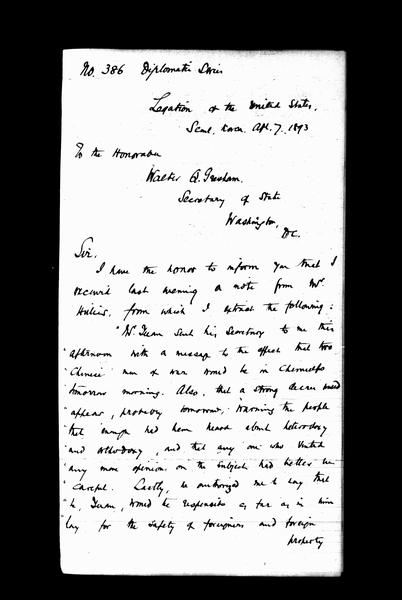 No. 386 Diplomatic Series
Legation of the United States,
Seoul, Korea. Apl. 7. 1893
To the Honorable
Walter Q. Gresham.
Secretary of State
Washington,
D.C.
Sir,
I have the honor to inform you that I
received last evening a note from Mr.
from which I extract the following:
"Mr. Yuan sent his Secretary to me this
"afternoon with a message to the effect that two
"Chinese men of war would be in Chemulpo
"tomorrow morning. Also, that a strong decree would
"appear, probably tomorrow, warning the people
"that enough had been heard about heterodoxy
"and orthodoxy, and that any one who
"any more opinions on the subject had better be
"careful. Lastly, he authorized me to say that
"he, Yuan, would be responsible as far as in him
"lay for the safety of foreigners and foreign
property